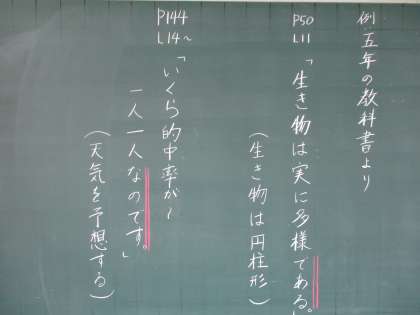 例 五年の教科書より
P50
L11
「生き物は実に多様である。
(生き物は円柱形)
P144
L14～
「いくら的中率が～
一人一人なのです。」
(天気を予想する)